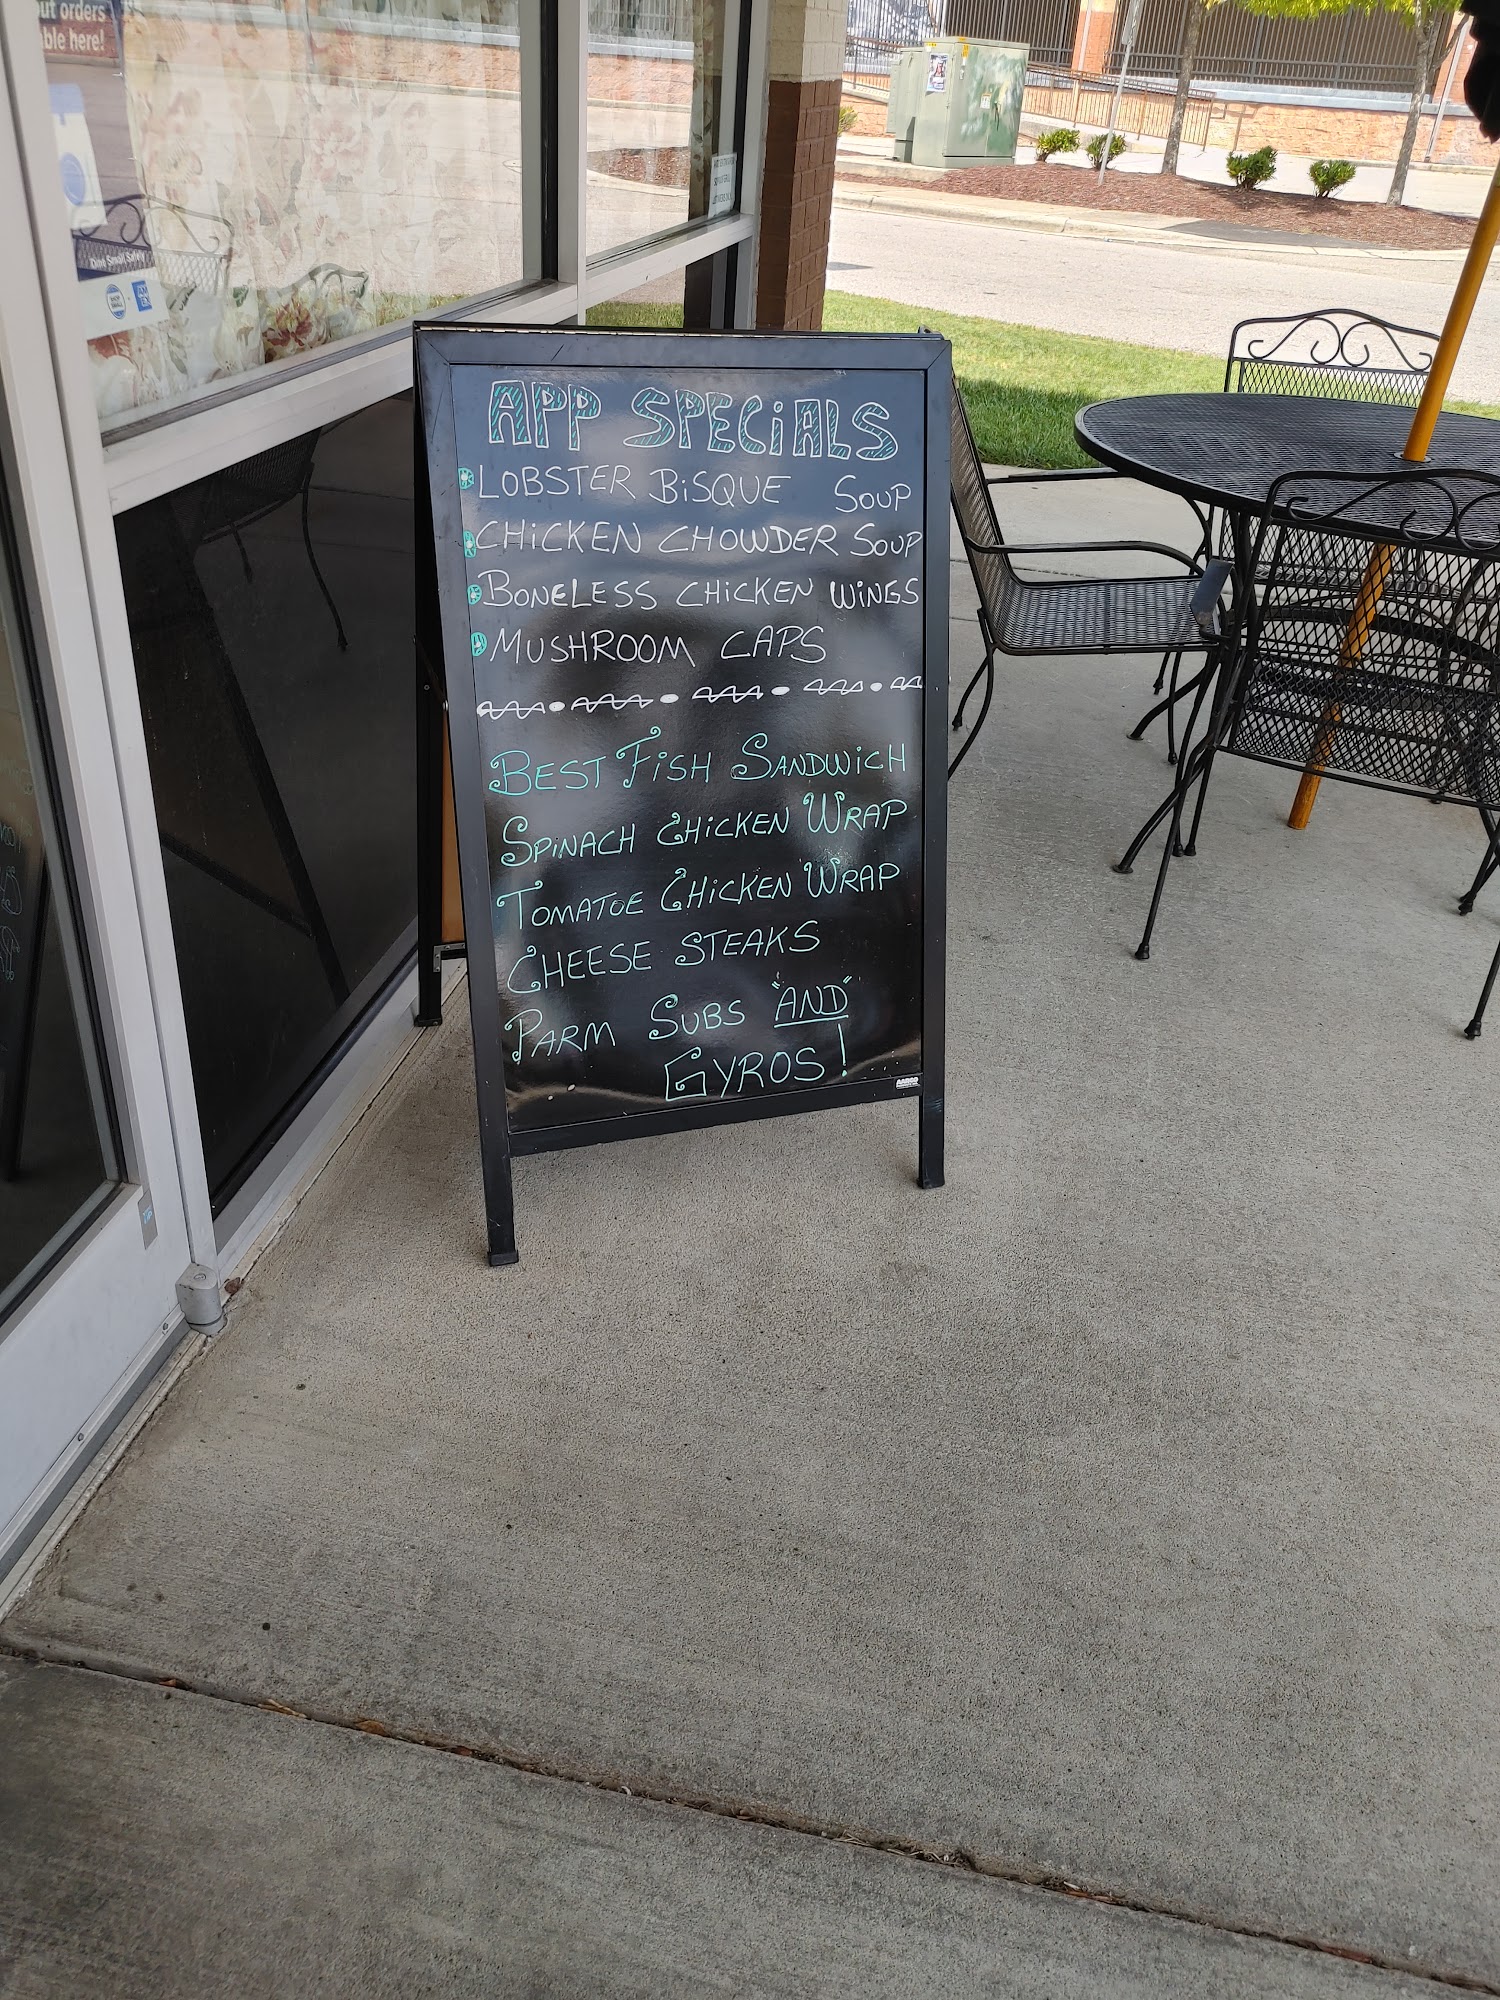 ut orders
ble here!
Dine Small Safely
SHOP SMALL
AM EX
APP SPECiALS
LOBSTER BiSQUE SOUP
CHiCKEN CHOWDER SOUP
BONELESS CHICKEN WiNGS
MUSHROOM CAPS
BEST FiSH SANDWiCH
SPiNACH CHiCKEN WRAP
TOMATOE CHiCKEN WRAP
CHEESE STEAKS
PARM SUBS "AND"
GYROS!